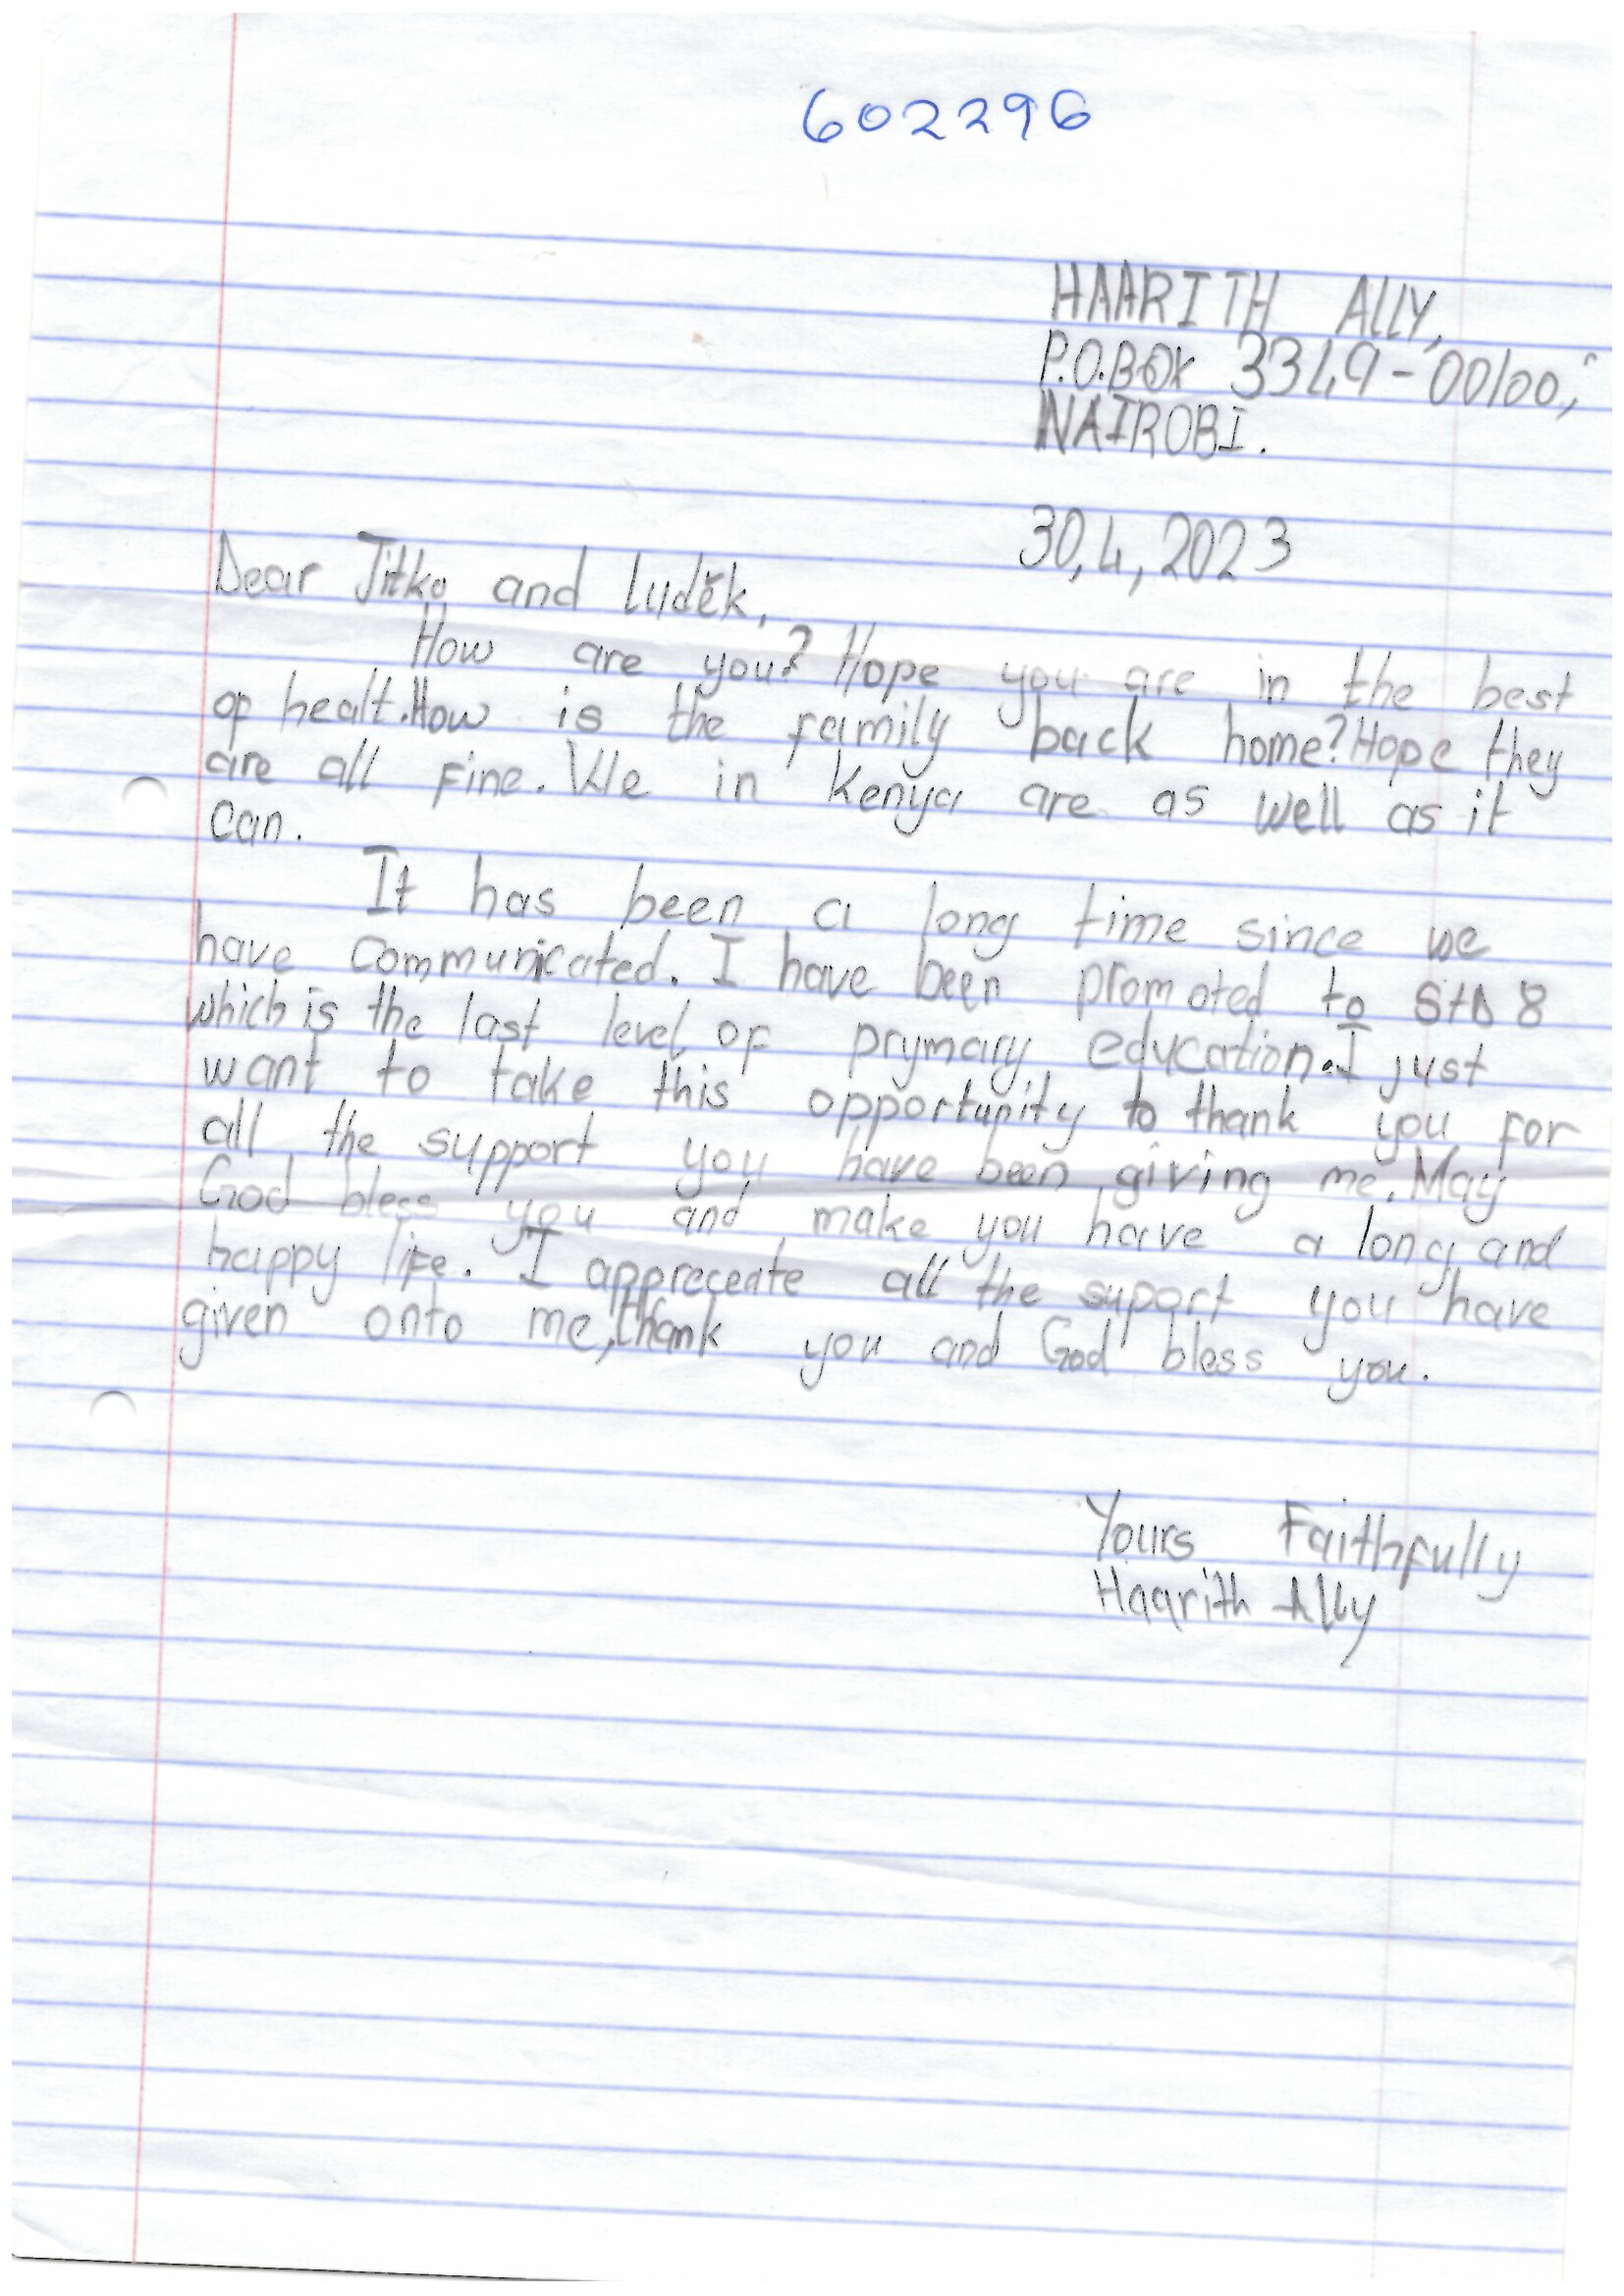 602296
HAARITH ALLY,
P.O.BOX 3349-00100,
NAIROBI.
30,4,2023
Dear Jitka and Luděk,
How are you? Hope you are in the best
of healt.How is the family back home?Hope they
are all fine. We in Kenya are as well as it
can.
It has been a long time since we
have communicated. I have been promoted to STD 8
which is the last level of prymary education.I just
want to take this opportunity to thank you for
all the support you have been giving me. May
God bless you and make you have a long and
happy life. I apprecente all the suport you have
given onto me,thank you and God bless you.
Yours Faithfully
Haarith Ally